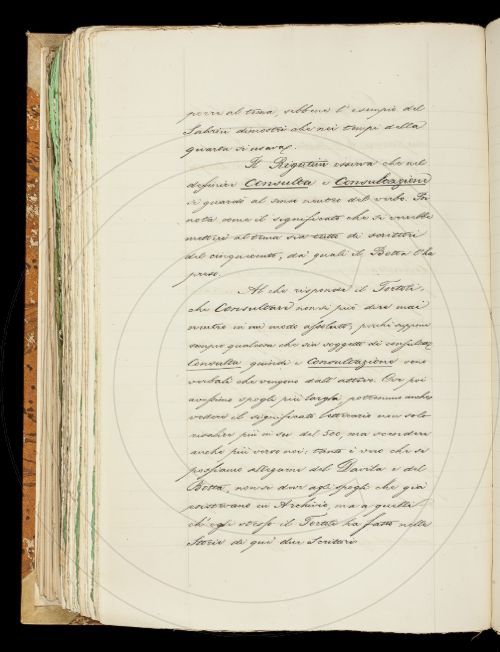 porre al tema, sebbene l'esempio del
Salvini dimostri che nei tempi della
quarta si usava.
Il Rigutini osserva che nel
definire Consulta e Consultazione
si guardò al senso neutro del verbo. Fa
nota come il significato che si vorrebbe
mettere al tema sia tutto di scrittori
del cinquecento, da' quali il Botta l'ha
preso.
Al che risponde il Tortoli,
che Consultare non si può dire mai
neutro in un modo assoluto, perchè suppone
sempre qualcosa che sia soggetto di
Consulta quindi e Consultazione sono
verbali che vengono dall'attivo. Che poi
avessimo spogli più larghi potremmo anche
vedere il significato letterario non solo
risalire più in su del 500, ma scendere
anche più verso noi: tanto è vero che si
possiamo allegarne del Davila e del
Botta, non si deve agli spogli che già
esistevano in Archivio, ma a quelli
ch'egli stesso il Tortoli ha fatto nelle
Storie di quei due Scrittori